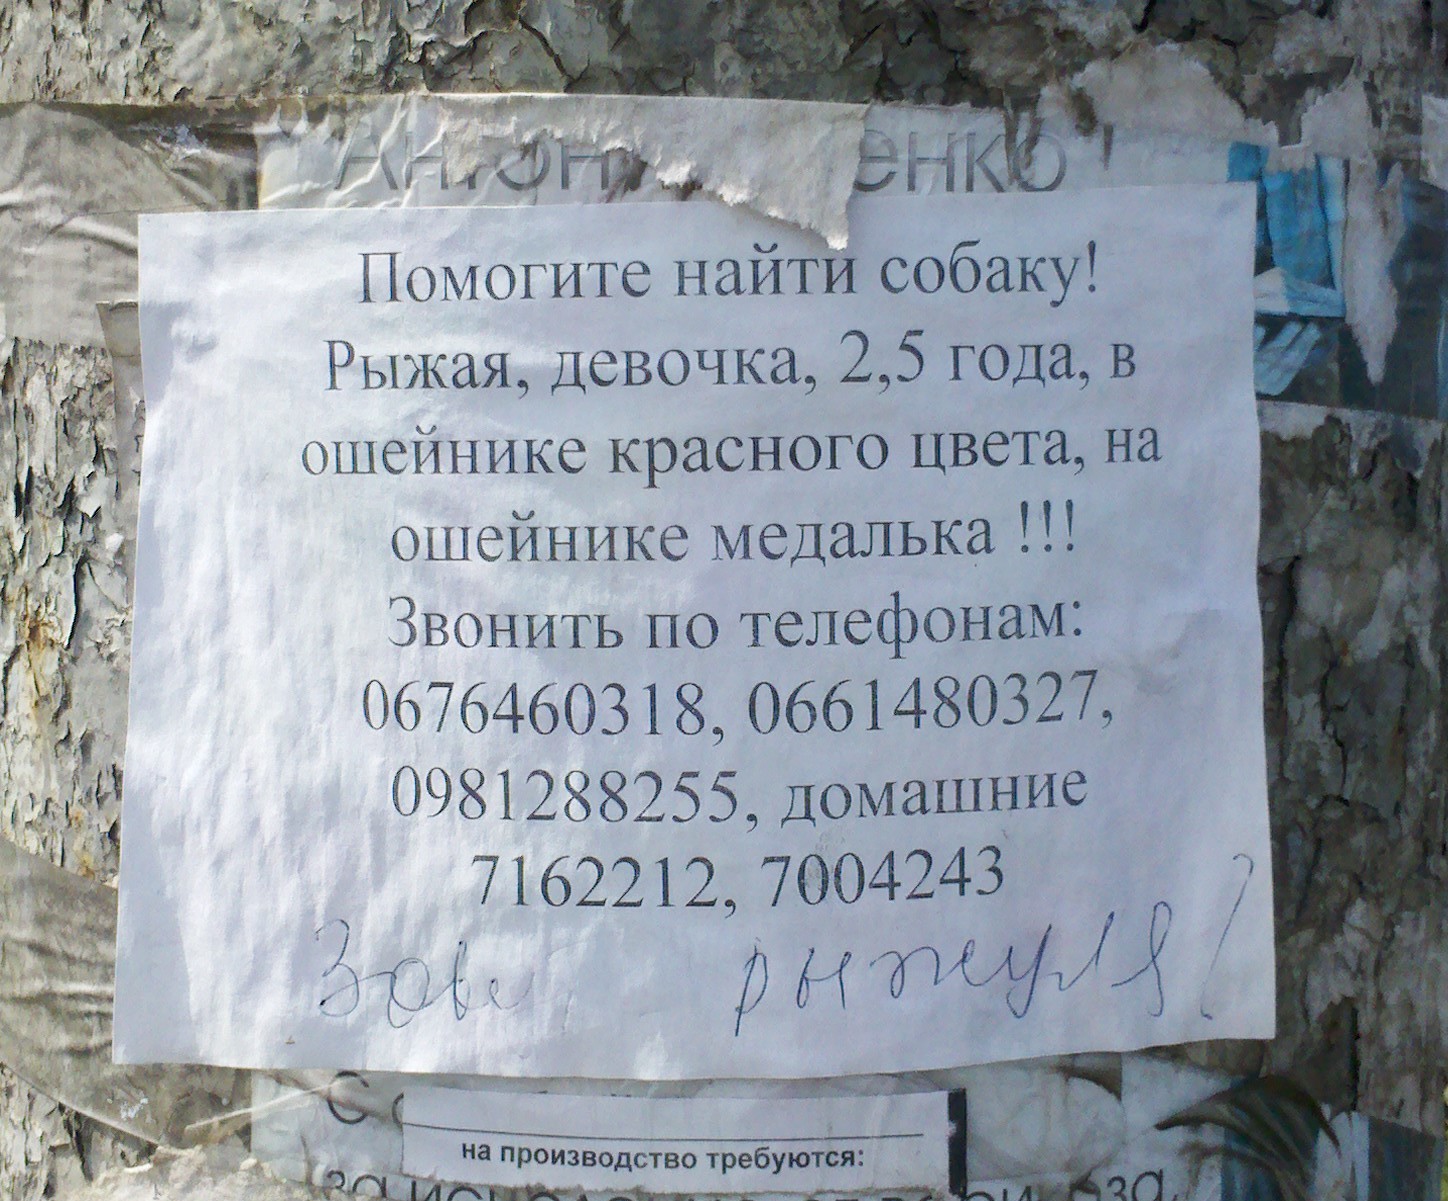 Помогите найти собаку!
Рыжая, девочка, 2,5 года, в
ошейнике красного цвета, на
ошейнике медалька !!!
Звонить по телефонам:
0676460318, 0661480327,
0981288255, домашние
7162212, 7004243
Зовут рыжуля!
на производство требуются: